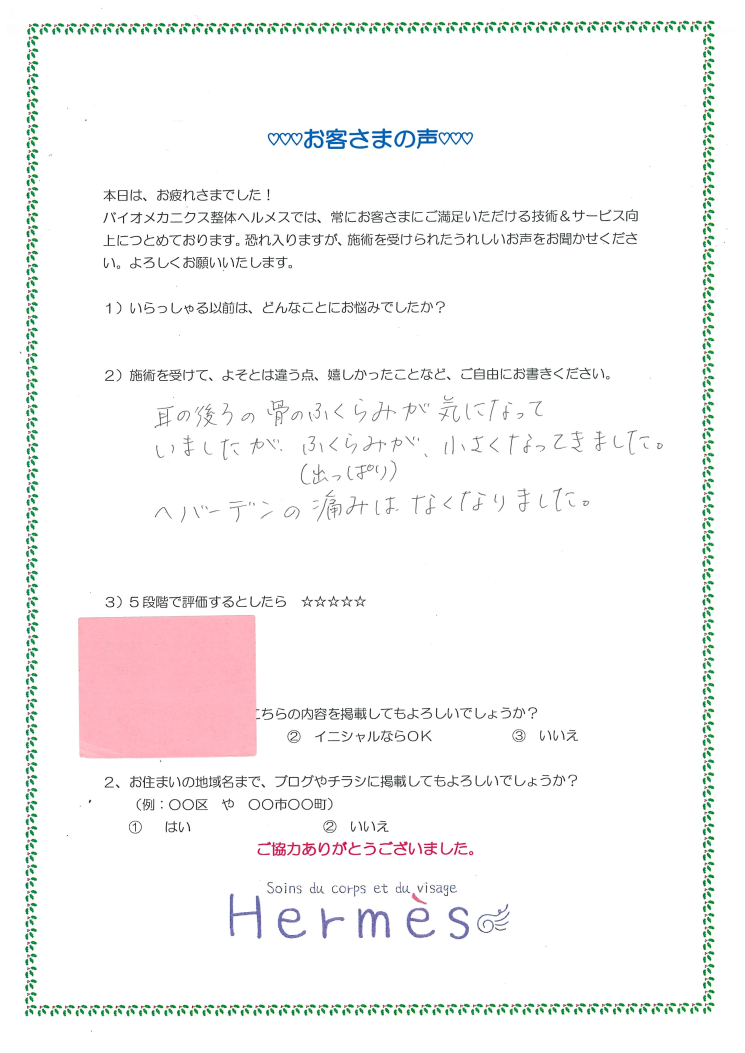 ♡♡♡お客さまの声♡♡♡
本日は、お疲れさまでした！
バイオメカニクス整体ヘルメスでは、常にお客さまにご満足いただける技術＆サービス向
上につとめております。恐れ入りますが、施術を受けられたうれしいお声をお聞かせくださ
い。よろしくお願いいたします。
１）いらっしゃる以前は、どんなことにお悩みでしたか？
２）施術を受けて、よそとは違う点、嬉しかったことなど、ご自由にお書きください。
耳の後ろの骨のふくらみが気になって
いましたが、ふくらみが、小さくなってきました。
（出っぱり）
ヘバーデンの痛みは なくなりました。
３）５段階で評価するとしたら　☆☆☆☆☆
こちらの内容を掲載してもよろしいでしょうか？
②　イニシャルならＯＫ　③　いいえ
２、お住まいの地域名まで、ブログやチラシに掲載してもよろしいでしょうか？
（例：〇〇区　や　〇〇市〇〇町）
①　はい　②　いいえ
ご協力ありがとうございました。
Soins du corps et du visage
Hermès